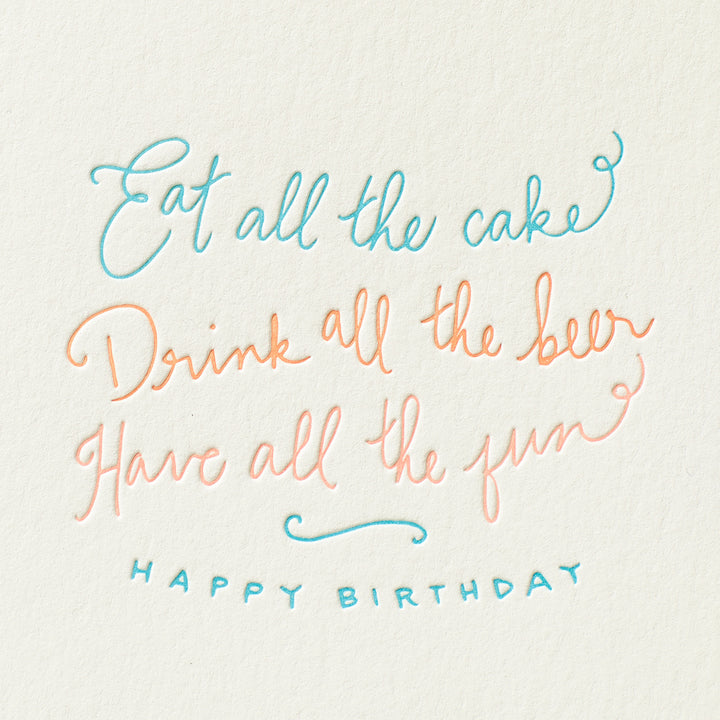 Eat all the cake
Drink all the beer
Have all the fun
HAPPY BIRTHDAY